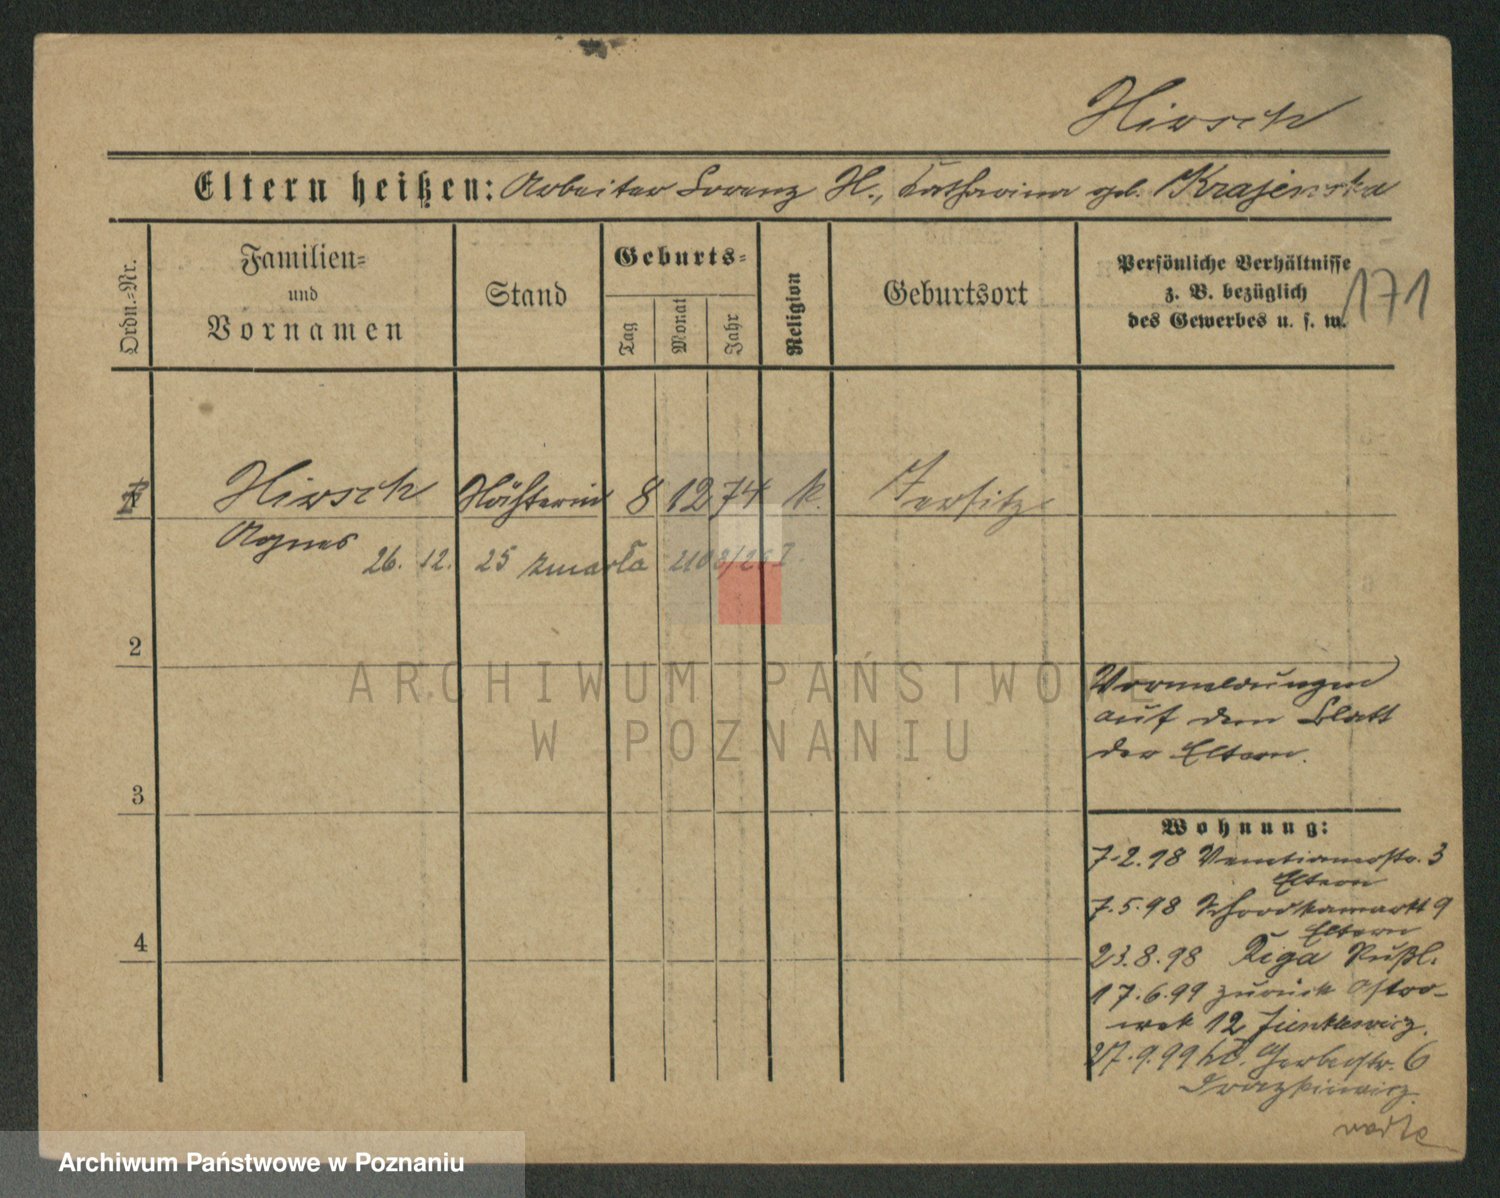 Hirsch
Eltern heißen: Arbeiter Lorenz H., Katharina geb. Krajenska
Ordn.-Nr.
Familien- und Vornamen
Stand
Geburts-
Tag
Monat
Jahr
Religion
Geburtsort
Persönliche Verhältnisse
z. B. bezüglich
des Gewerbes u. s. w.
171
1 Hirsch Näherin 8 12 74 k. Jersitz
Agnes
26. 12. 25 zmarła
2
Vormeldungen
auf dem Blatt
der Eltern.
3
Wohnung:
7.2.98 Venetianerstr. 3
Eltern
7.5.98 Schrodkamarkt 9
Eltern
4
23.8.98 Riga Rußl.
17.6.99 zurück Ostro-
wek 12
27.9.99 Gerberstr. 6
ARCHIWUM PAŃSTWOWE
W POZNANIU
Archiwum Państwowe w Poznaniu